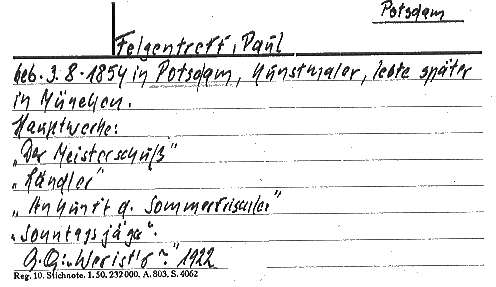 Potsdam
Felgentreff, Paul
geb. 3.8.1854 in Potsdam, Kunstmaler, lebte später
in München.
Hauptwerke:
„Der Meisterschuß"
„Händler"
„Ankunft d. Sommerfrischler"
„Sonntagsjäger".
„Wer ist's?" 1922
Reg. 10. Stichnote. 1. 50. 232000. A. 803. S. 4062